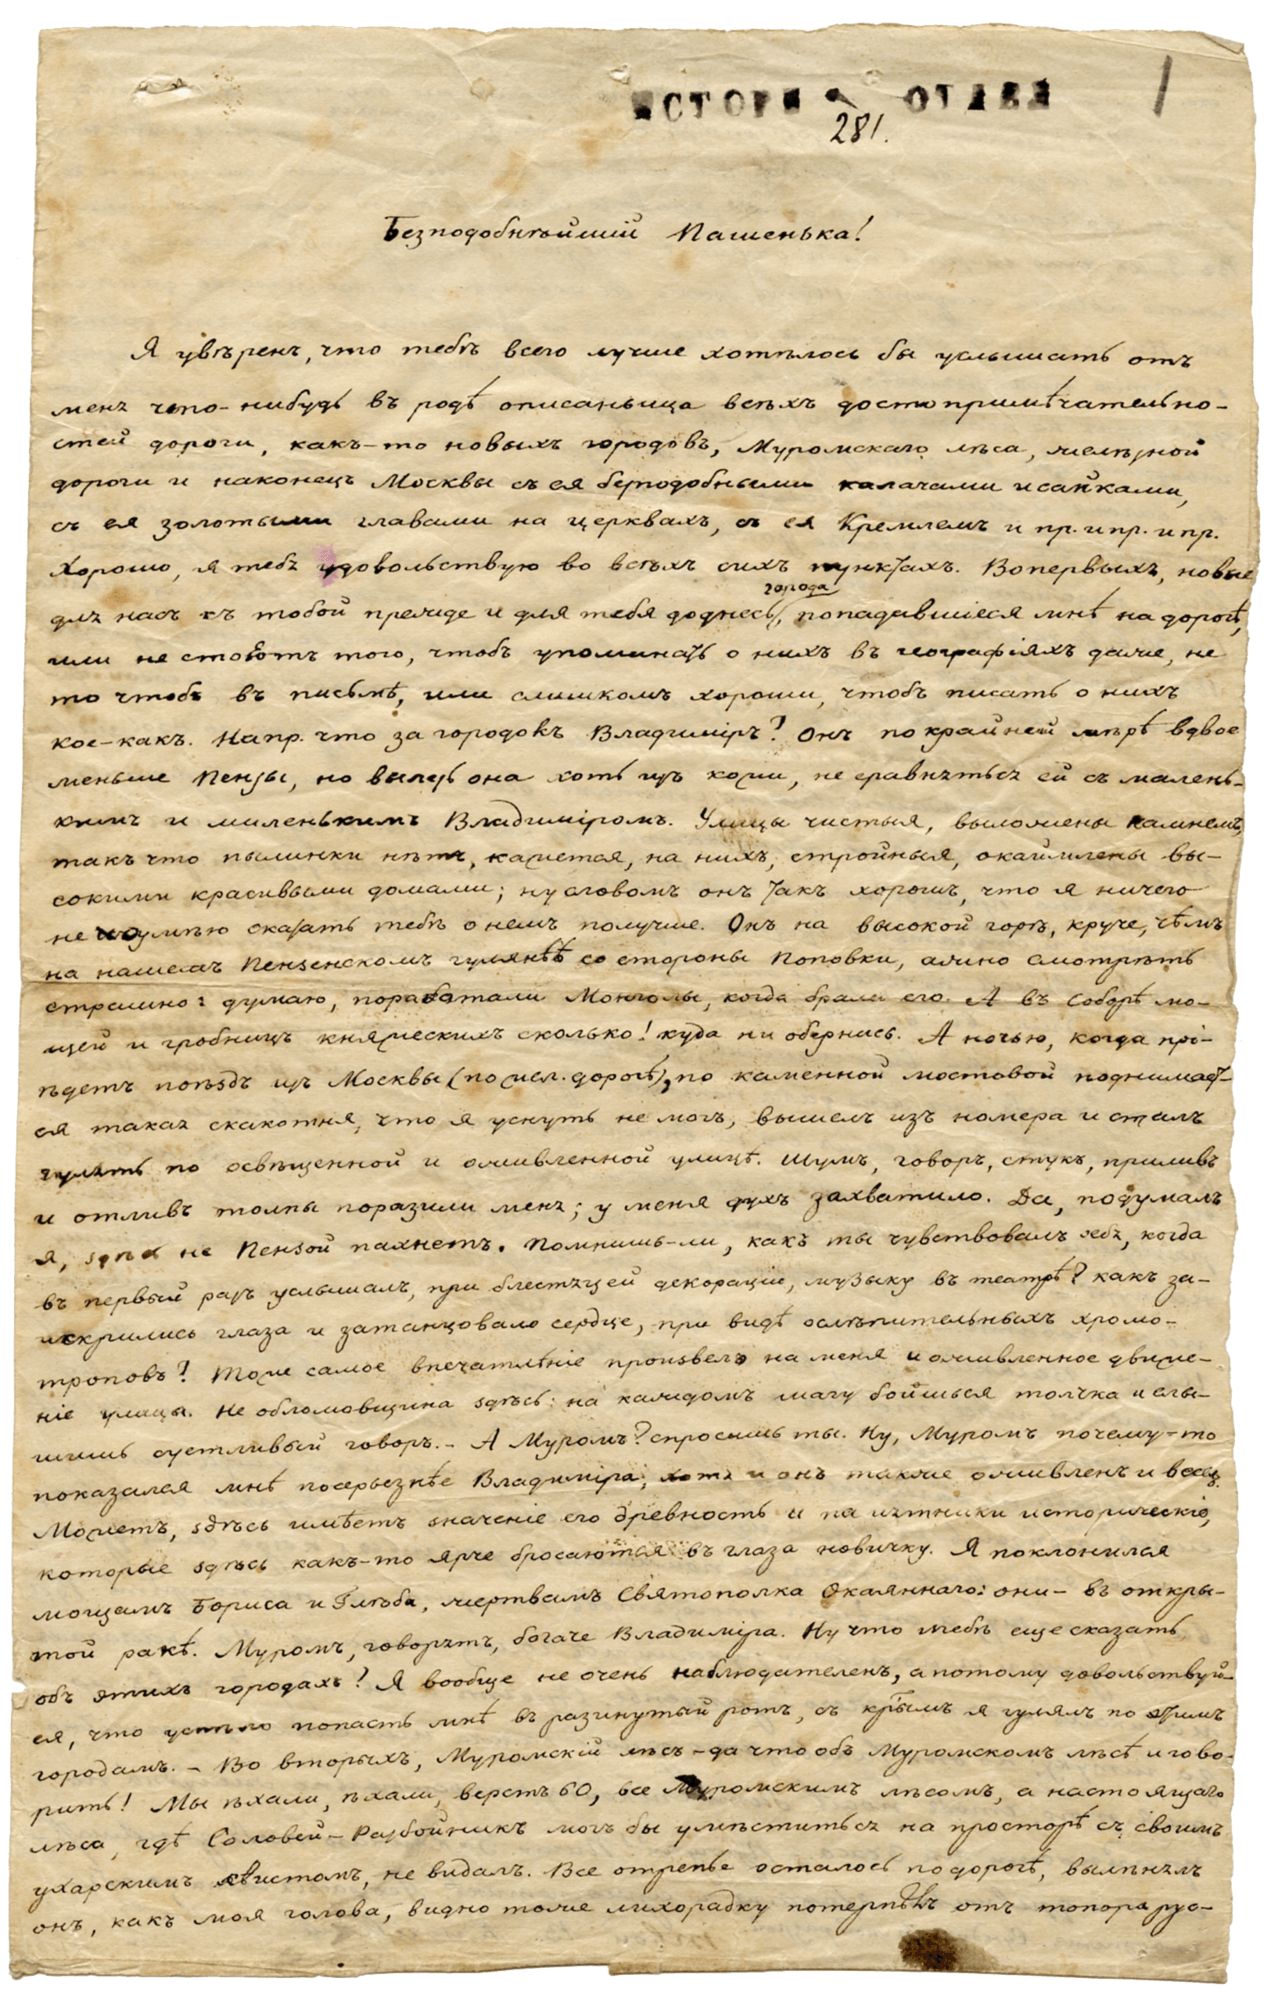 ИСТОРИ ОТДЕЛ
281.
Безподобнѣйшій Пашенька!
Я увѣренъ, что тебѣ всего лучше хотѣлось бы услышать отъ
меня что-нибудь въ родѣ описаньица всѣхъ достопримѣчательно-
стей дороги, какъ-то новыхъ городовъ, Муромскаго лѣса, желѣзной
дороги и наконецъ Москвы съ ея безподобными калачами и сайками,
съ ея золотыми главами на церквахъ, съ ея Кремлемъ и пр. и пр. и пр.
Хорошо, я тебя удовольствую во всѣхъ сихъ пунктахъ. Вопервыхъ, новые
города
для насъ съ тобой прежде и для тебя доднесь, попадавшіеся мнѣ на дорогѣ,
или не стоютъ того, чтобъ упоминать о нихъ въ географіяхъ даже, не
то чтобъ въ письмѣ, или слишкомъ хороши, чтобъ писать о нихъ
кое-какъ. Напр. что за городокъ Владиміръ? Онъ по крайней мѣрѣ вдвое
меньше Пензы, но вылѣзь она хоть изъ кожи, не сравняться ей съ малень-
кимъ и миленькимъ Владиміромъ. Улицы чистыя, выложены камнемъ,
такъ что пылинки нѣтъ, кажется, на нихъ, стройныя, окаймлены вы-
сокими красивыми домами; ну словомъ онъ такъ хорошъ, что я ничего
не умѣю сказать тебѣ о немъ получше. Онъ на высокой горѣ, круче, чѣмъ
на нашемъ Пензенскомъ гуляньѣ со стороны Поповки, ажно смотрѣть
страшно: думаю, поработали Монголы, когда брали его. А въ Соборѣ мо-
щей и гробницъ княжескихъ сколько! куда ни обернись. А ночью, когда прі-
ѣдетъ поѣздъ изъ Москвы (по жел. дорогѣ), по каменной мостовой поднимает-
ся такая скакотня, что я уснуть не могъ, вышелъ изъ номера и сталъ
гулять по освѣщенной и оживленной улицѣ. Шумъ, говоръ, стукъ, приливъ
и отливъ толпы поразили меня; у меня духъ захватило. Да, подумалъ
я, здѣсь не Пензой пахнетъ. Помнишь-ли, какъ ты чувствовалъ себя, когда
въ первый разъ услышалъ, при блестящей декораціи, музыку въ театрѣ? какъ за-
искрились глаза и затанцовало сердце, при видѣ ослѣпительныхъ хромо-
троповъ? Тоже самое впечатлѣніе произвело на меня и оживленное движе-
ніе улицы. Не обломовщина здѣсь: на каждомъ шагу боишься толчка и слы-
шишь суетливый говоръ. - А Муромъ? спросишь ты. Ну, Муромъ почему-то
показался мнѣ посерьезнѣе Владиміра, хотя и онъ также оживленъ и веселъ.
Можетъ, здѣсь имѣетъ значеніе его древность и памятники историческіе,
которые здѣсь какъ-то ярче бросаются въ глаза новичку. Я поклонился
мощамъ Бориса и Глѣба, жертвамъ Святополка Окаяннаго: они - въ откры-
той ракѣ. Муромъ, говорятъ, богаче Владиміра. Ну что тебѣ еще сказать
объ этихъ городахъ? Я вообще не очень наблюдателенъ, а потому довольствуй-
ся, что успѣло попасть мнѣ въ разинутый ротъ, съ которымъ я гулялъ по этимъ
городамъ. - Во вторыхъ, Муромскій лѣсъ - да что объ Муромскомъ лѣсѣ и гово-
рить! Мы ѣхали, ѣхали, верстъ 60, все Муромскимъ лѣсомъ, а настоящаго
лѣса, гдѣ Соловей-Разбойникъ могъ бы умѣститься на просторѣ съ своимъ
ухарскимъ свистомъ, не видалъ. Все отрепье осталось по дорогѣ, вылѣнялъ
онъ, какъ моя голова, видно тоже лихорадку потерпѣлъ отъ топора рус-